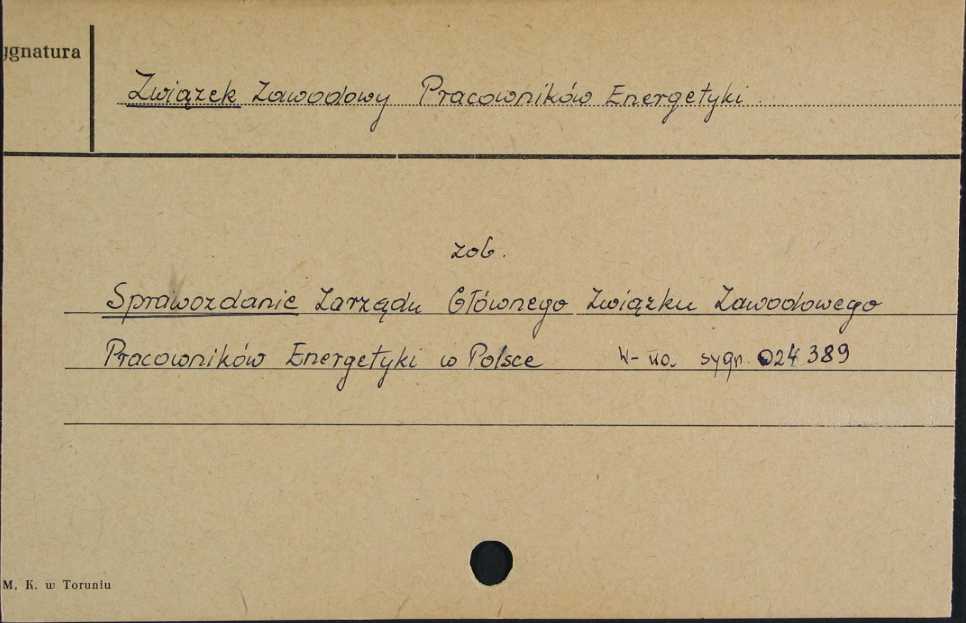 ygnatura
Związek Zawodowy Pracowników Energetyki
zob.
Sprawozdanie Zarządu Głównego Związku Zawodowego
Pracowników Energetyki w Polsce W-wa. sygn. 024389
M. K. w Toruniu